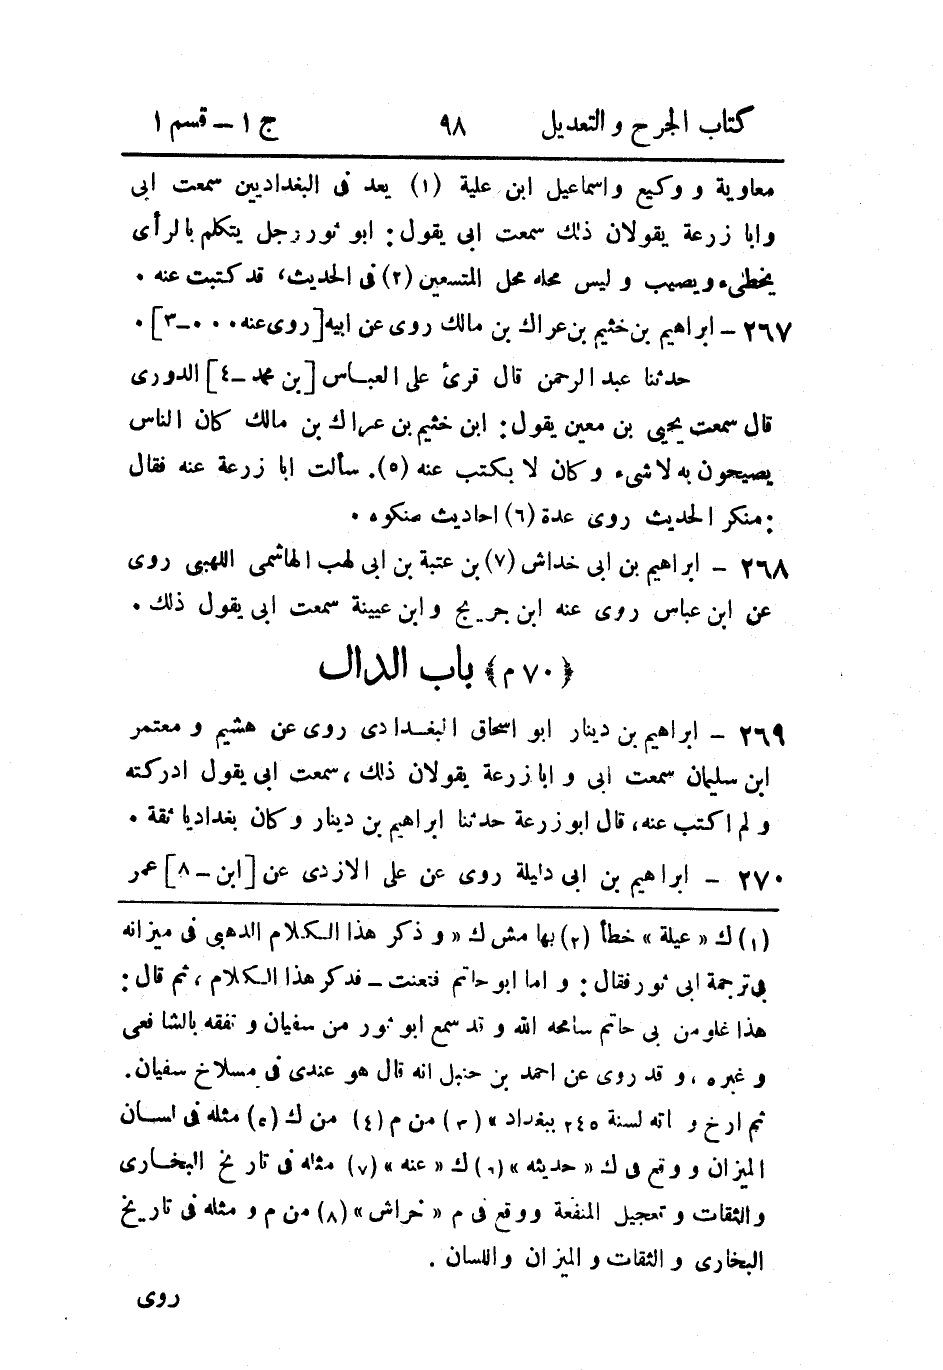 كتاب الجرح والتعديل ٩٨ ج ١ – قسم ١
معاوية و وكيع واسماعيل ابن علية (١) يعد فى البغداديين سمعت ابى
وابا زرعة يقولان ذلك سمعت ابى يقول: ابو ثور رجل يتكلم بالرأى
يخطىء ويصيب و ليس محله محل المتسعين (٢) فى الحديث، قد كتبت عنه ٠
٢٦٧ – ابراهيم بن خثيم بن عراك بن مالك روى عن ابيه [روى عنه ٠٠٠ –٣] ٠
حدثنا عبد الرحمن قال قرئ على العباس [بن محمد –٤] الدورى
قال سمعت يحيى بن معين يقول: ابن خثيم بن عراك بن مالك كان الناس
يصيحون به لا شىء و كان لا يكتب عنه (٥). سألت ابا زرعة عنه فقال
:منكر الحديث روى عدة (٦) احاديث منكره ٠
٢٦٨ – ابراهيم بن ابى خداش (٧) بن عتبة بن ابى لهب الهاشمى اللهبى روى
عن ابن عباس روى عنه ابن جريج و ابن عيينة سمعت ابى يقول ذلك ٠
﴿٧٠ م﴾ باب الدال
٢٦٩ – ابراهيم بن دينار ابو اسحاق البغدادى روى عن هشيم و معتمر
ابن سليمان سمعت ابى و ابا زرعة يقولان ذلك ، سمعت ابى يقول ادركته
و لم اكتب عنه، قال ابو زرعة حدثنا ابراهيم بن دينار و كان بغداديا ثقة ٠
٢٧٠ – ابراهيم بن ابى دليلة روى عن على الازدى عن [ابن –٨] عمر
(١) ك « عيلة » خطأ (٢) بها مش ك « و ذكر هذا الكلام الذهبى فى ميزانه
فى ترجمة ابى ثور فقال : و اما ابو حاتم فتعنت – فذكر هذا الكلام ، ثم قال :
هذا غلو من بى حاتم سامحه الله و قد سمع ابو ثور من سفيان و تفقه بالشافعى
و غيره ، و قد روى عن احمد بن حنبل انه قال هو عندى فى مسلاخ سفيان.
ثم ارخ و اته لسنة ٢٤٥ ببغداد » (٣) من م (٤) من ك (٥) مثله فى لسان
الميزان و وقع فى ك « حديثه » (٦) ك « عنه » (٧) مثله فى تاريخ البخارى
والثقات و تعجيل المنفعة و وقع فى م « خراش » (٨) من م و مثله فى تاريخ
البخارى و الثقات و الميزان واللسان .
روى